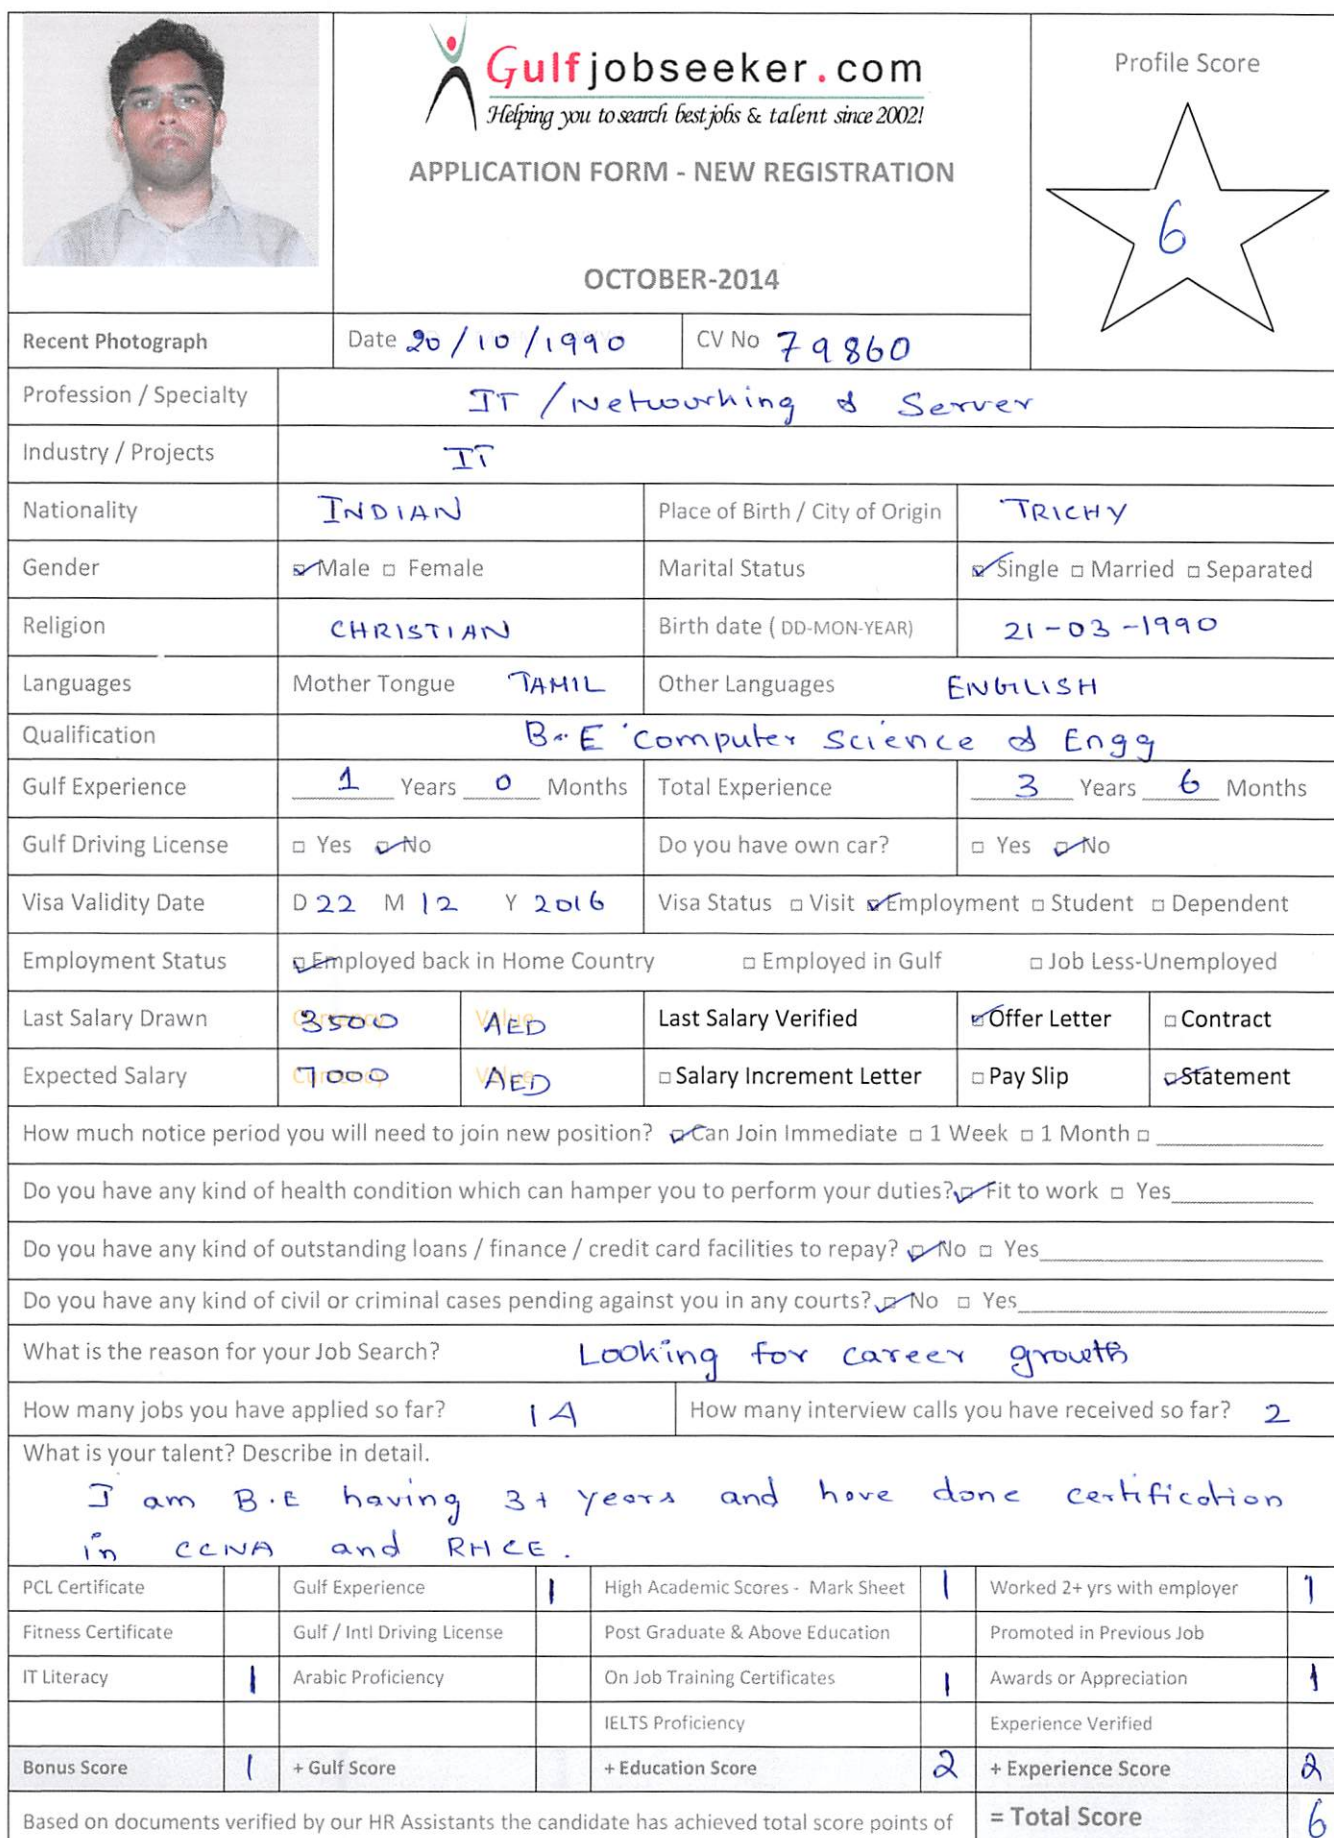 Gulfjobseeker.com
Helping you to search best jobs & talent since 2002!
APPLICATION FORM - NEW REGISTRATION
OCTOBER-2014
Profile Score
6
Recent Photograph Date 20/10/1990 CV No 79860
Profession / Specialty IT / Networking & Server
Industry / Projects IT
Nationality INDIAN Place of Birth / City of Origin TRICHY
Gender Male Female Marital Status Single Married Separated
Religion CHRISTIAN Birth date ( DD-MON-YEAR) 21-03-1990
Languages Mother Tongue TAMIL Other Languages ENGLISH
Qualification B.E Computer Science & Engg
Gulf Experience 1 Years 0 Months Total Experience 3 Years 6 Months
Gulf Driving License Yes No Do you have own car? Yes No
Visa Validity Date D 22 M 12 Y 2016 Visa Status Visit Employment Student Dependent
Employment Status Employed back in Home Country Employed in Gulf Job Less-Unemployed
Last Salary Drawn 3500 AED Last Salary Verified Offer Letter Contract
Expected Salary 7000 AED Salary Increment Letter Pay Slip Statement
How much notice period you will need to join new position? Can Join Immediate 1 Week 1 Month
Do you have any kind of health condition which can hamper you to perform your duties? Fit to work Yes
Do you have any kind of outstanding loans / finance / credit card facilities to repay? No Yes
Do you have any kind of civil or criminal cases pending against you in any courts? No Yes
What is the reason for your Job Search? Looking for career growth
How many jobs you have applied so far? 14 How many interview calls you have received so far? 2
What is your talent? Describe in detail.
I am B.E having 3+ years and have done certification
in CCNA and RHCE.
PCL Certificate Gulf Experience 1 High Academic Scores - Mark Sheet 1 Worked 2+ yrs with employer 1
Fitness Certificate Gulf / Intl Driving License Post Graduate & Above Education Promoted in Previous Job
IT Literacy 1 Arabic Proficiency On Job Training Certificates 1 Awards or Appreciation 1
IELTS Proficiency Experience Verified
Bonus Score 1 + Gulf Score + Education Score 2 + Experience Score 2
Based on documents verified by our HR Assistants the candidate has achieved total score points of = Total Score 6